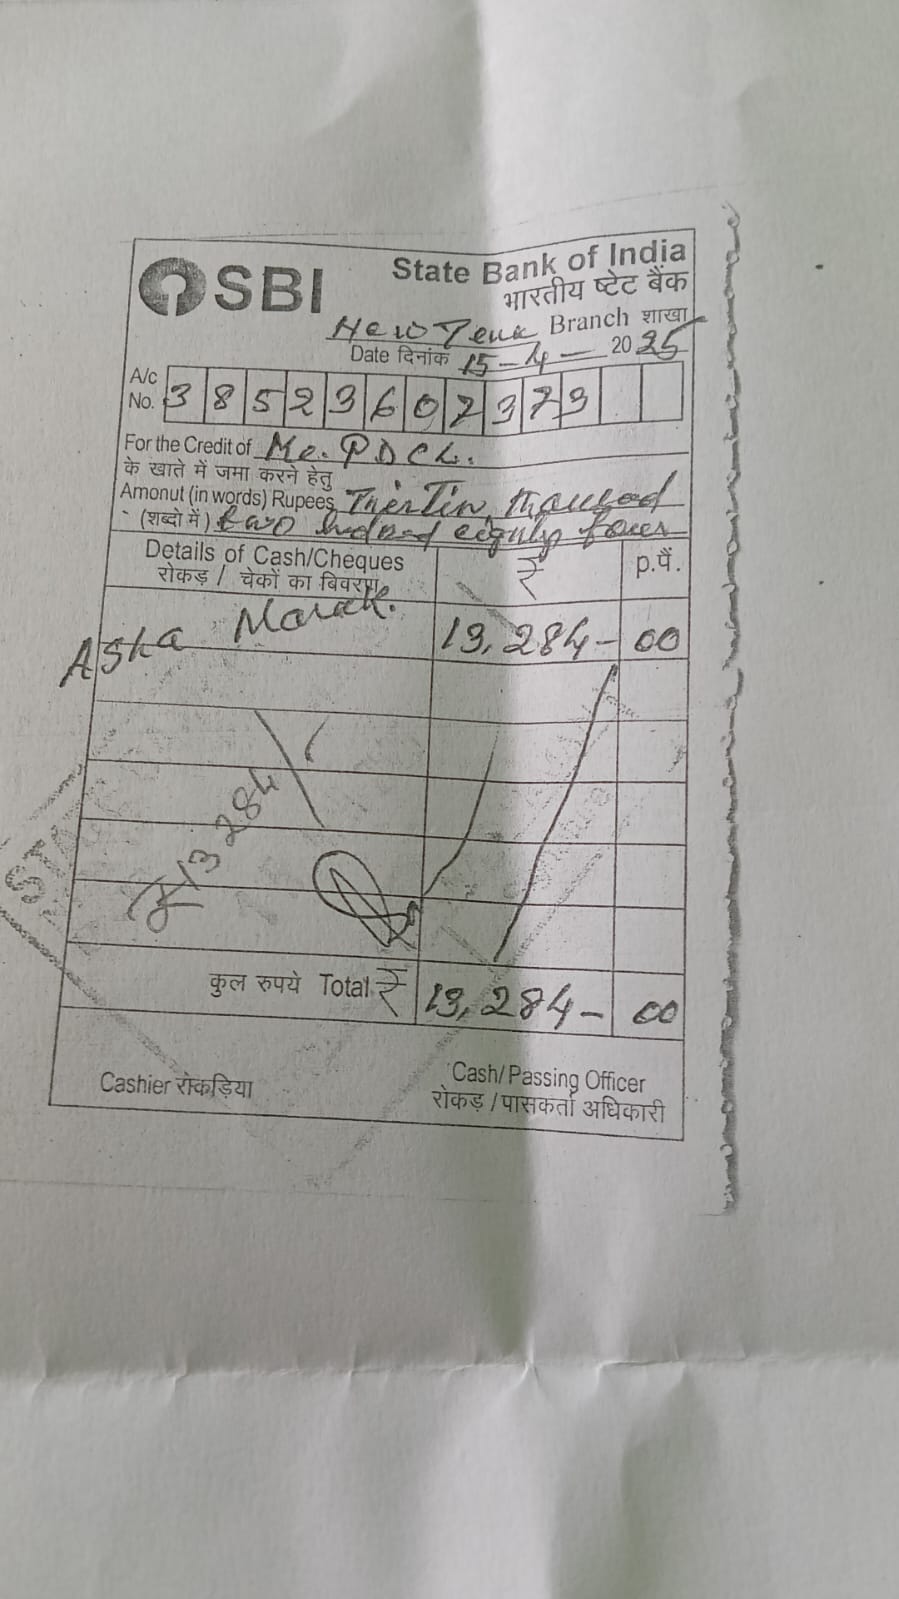 SBI
State Bank of India
भारतीय स्टेट बैंक
New Branch शाखा
Date दिनांक 15-4- 2025
A/c No. 38523602373
For the Credit of Me. PDCL.
के खाते में जमा करने हेतु
Amonut (in words) Rupees Thirtin thousad
(शब्दो में) two hudred eighty four
Details of Cash/Cheques ₹ p.पैं.
रोकड़ / चेकों का विवरण
Asha Marak. 13,284- 00
₹13284
कुल रुपये Total ₹ 13,284- 00
Cashier रोकड़िया
Cash/Passing Officer
रोकड़/पासकर्ता अधिकारी